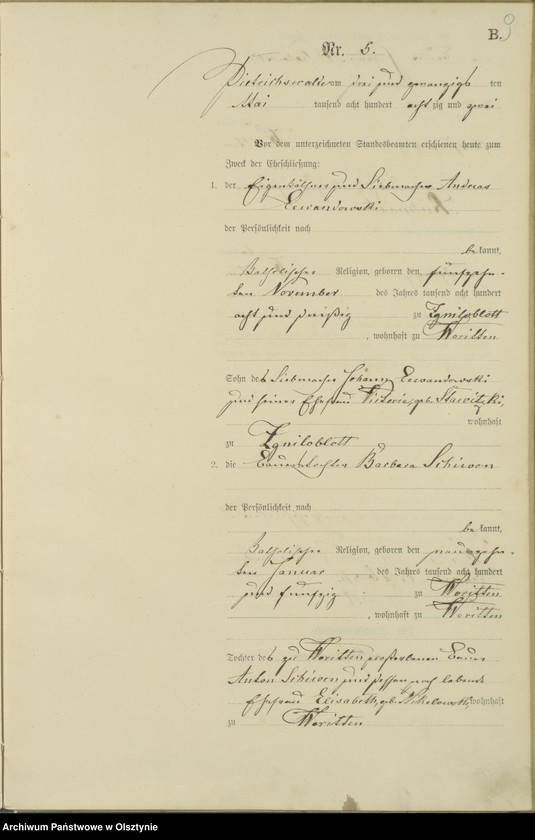 B.
9
Nr. 5.
Dietrichswalde am drei und zwanzigsten
Mai tausend acht hundert achtzig und zwei
Vor dem unterzeichneten Standesbeamten erschienen heute zum
Zweck der Eheschließung:
1. der Eigenkäthner und Siebmacher Andreas
Lewandowski
der Persönlichkeit nach
bekannt,
katholischer Religion, geboren den fünfzehn-
ten November des Jahres tausend acht hundert
acht und dreißig zu Zgniloblott
, wohnhaft zu Woritten
Sohn des Siebmacher Johann Lewandowski
und seiner Ehefrau Victoria, geb. Stawitzki,
wohnhaft
zu Zgniloblott
2. die Bauerstochter Barbara Schiwon
der Persönlichkeit nach
bekannt,
katholischer Religion, geboren den neunzehn-
ten Januar des Jahres tausend acht hundert
und fünfzig zu Woritten
, wohnhaft zu Woritten
Tochter des zu Woritten verstorbenen Bauer
Anton Schiwon und dessen noch lebende
Ehefrau Elisabeth, geb. wohnhaft
zu Woritten
Archiwum Państwowe w Olsztynie